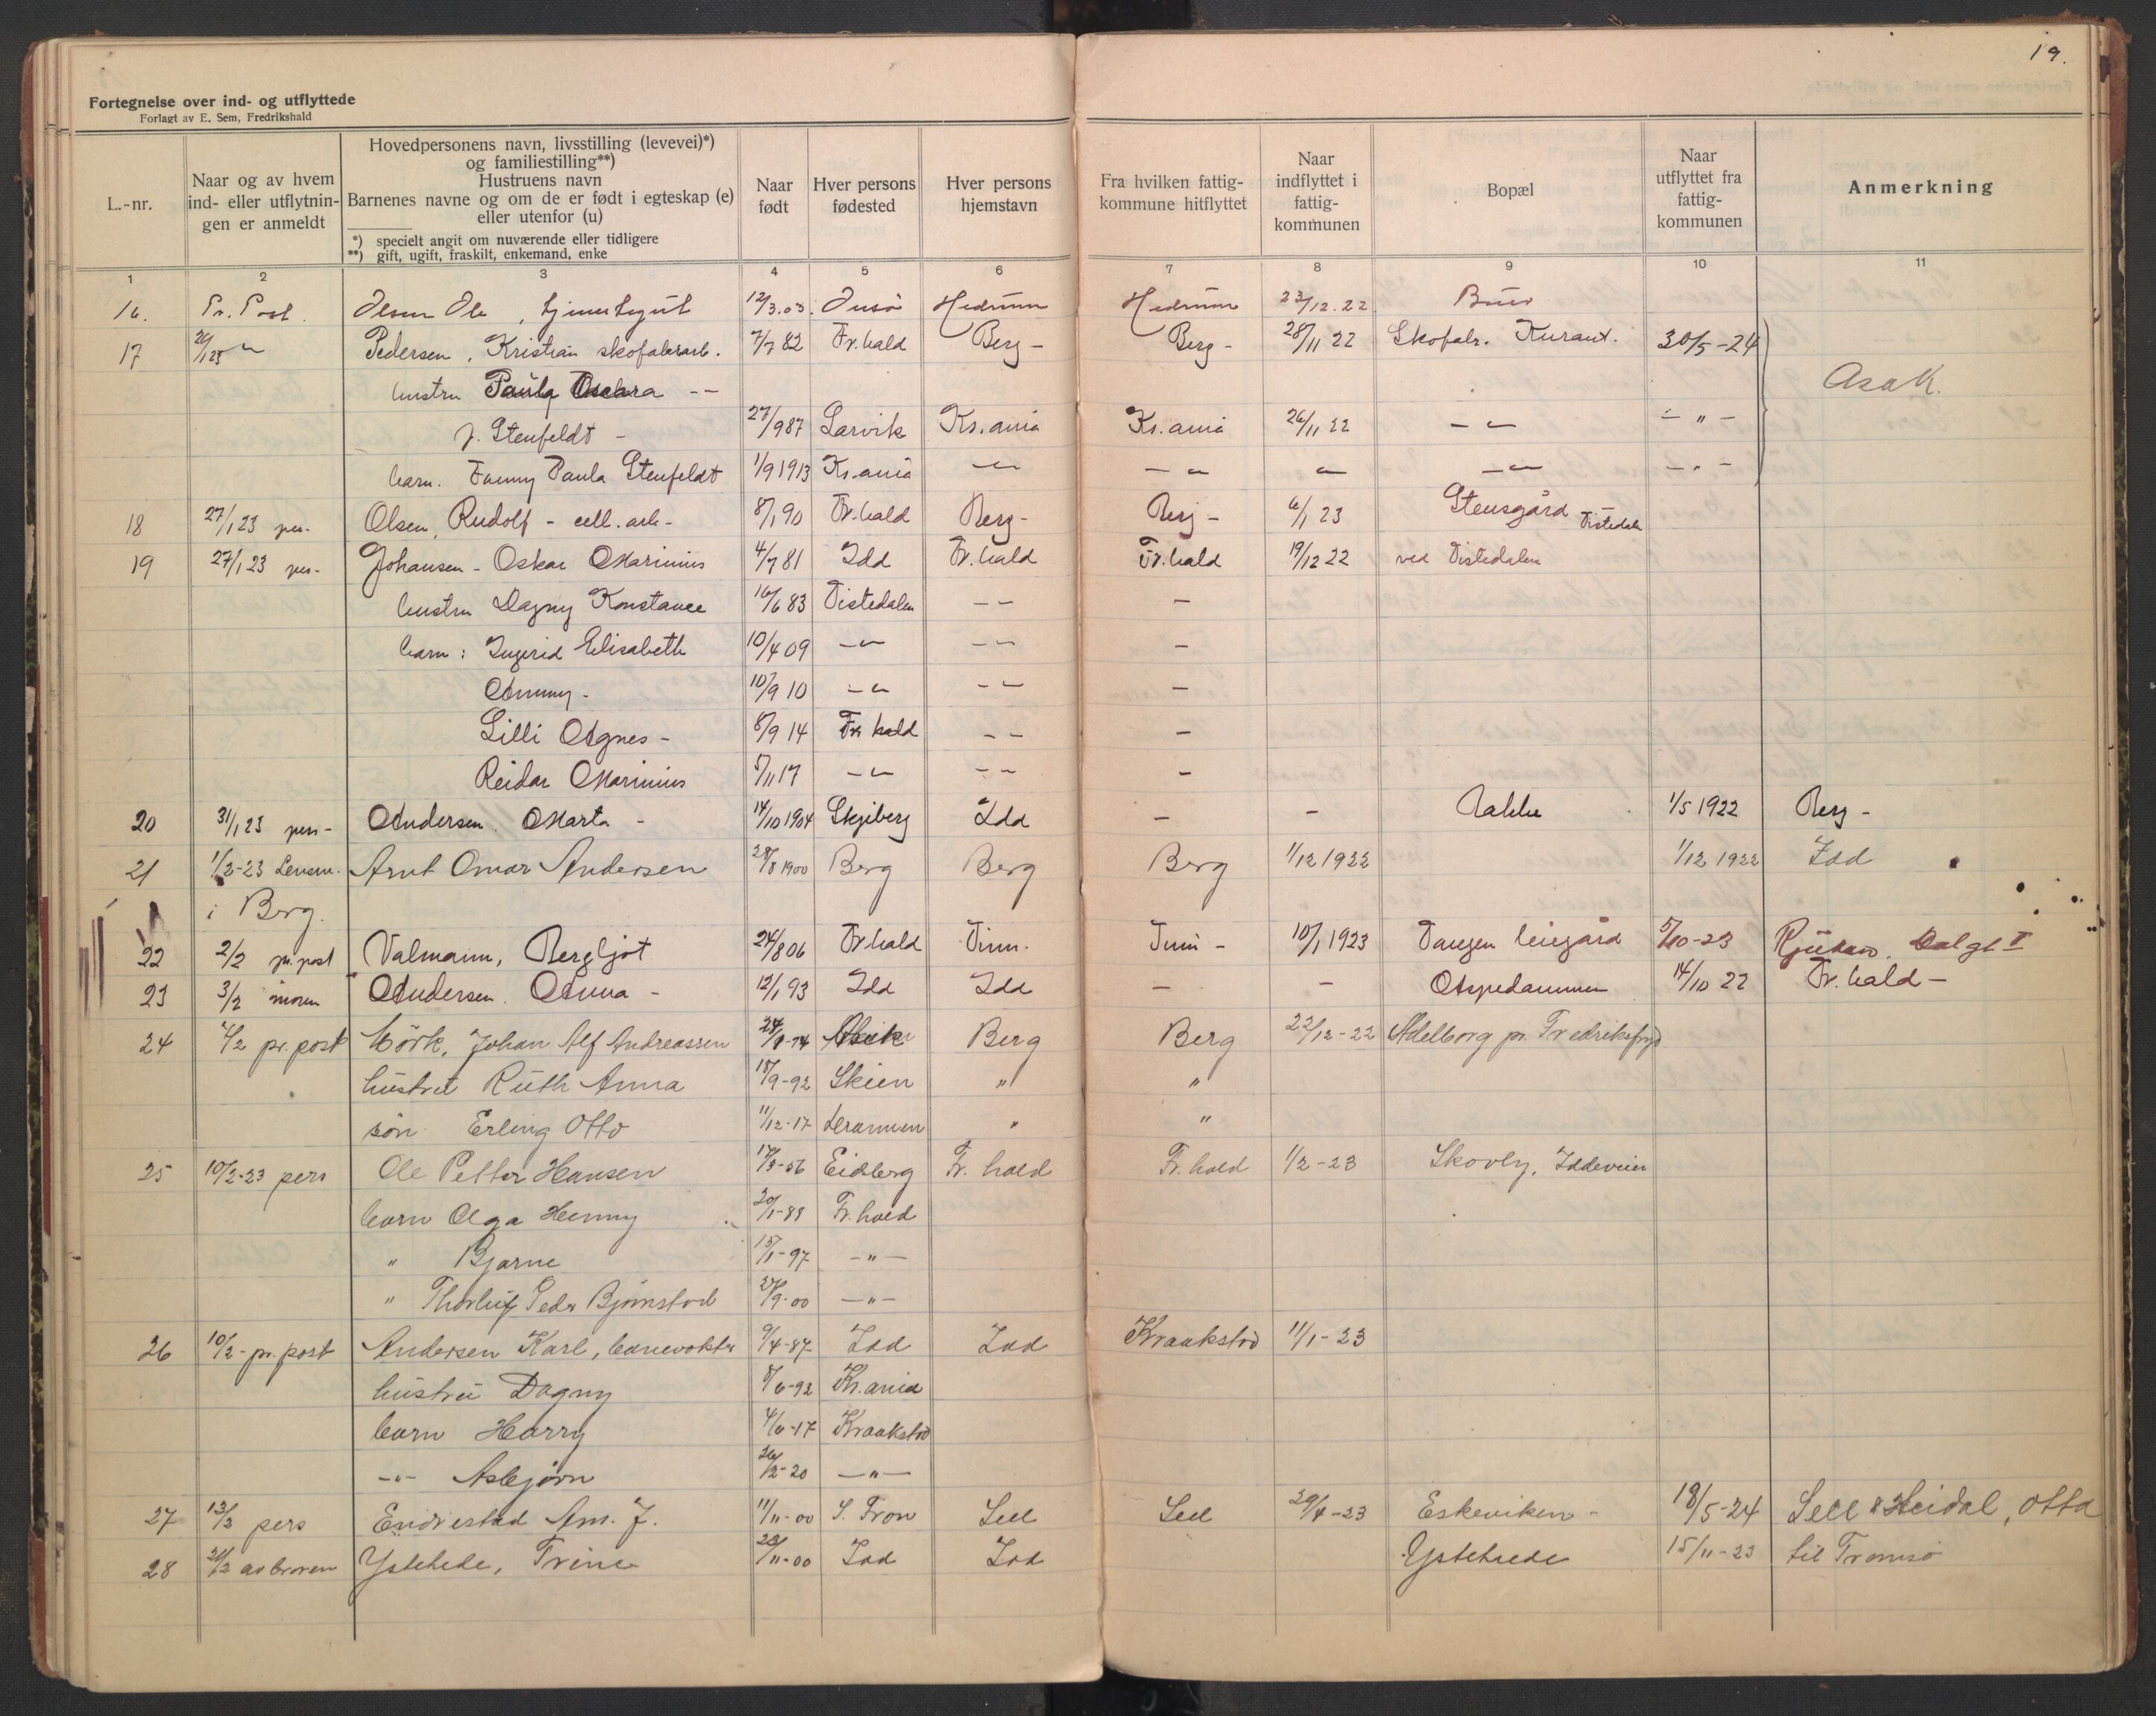 19.
Fortegnelse over ind- og utflyttede
Forlagt av E. Sem, Fredrikshald
L.-nr.
Naar og av hvem ind- eller utflytningen er anmeldt
Hovedpersonens navn, livsstilling (levevei)*)
og familiestilling**)
Hustruens navn
Barnenes navne og om de er født i egteskap (e)
eller utenfor (u)
*) specielt angit om nuværende eller tidligere
**) gift, ugift, fraskilt, enkemand, enke
Naar født
Hver persons fødested
Hver persons hjemstavn
Fra hvilken fattigkommune hitflyttet
Naar indflyttet i fattigkommunen
Bopæl
Naar utflyttet fra fattigkommunen
Anmerkning
1 2 3 4 5 6 7 8 9 10 11
16. Pr. Post. Olsen Ole, tjenestegut 12/3.03. Onsö Hedrum Hedrum 23/12.22
17 Pedersen, Kristian skofabrarb. 7/7 82 Fr.hald Berg - Berg - 28/11 22 Skofabr. Kurant. 30/5-24
hustru Paula Oscara -- Asak.
f. Stenfeldt - 27/9 87 Larvik Kr.ania Kr.ania 26/11 22 - " - - " -
barn. Fanny Paula Stenfeldt 1/9 1913 Kr.ania - " - - " - " - " - - " -
18 27/1 23 pers. Olsen, Rudolf - cell. arb - 8/1 90 Fr.hald Berg - Berg - 6/1 23 Stensgård Tistedalen
19 27/1 23 pers. Johansen - Oskar Marinius 4/7 81 Idd Fr.hald Fr.hald 19/12 22 ved Tistedalen
hustru Dagny Konstance 16/6 83 Tistedalen - - -
barn: Ingerid Elisabeth 10/4 09 - " - - " -
Ammy - 10/9 10 - " - - " -
Lilli Agnes - 8/9 14 Fr hald - - -
Reidar Marinius 5/11 17 - " - - " -
20 31/1 23 pers - Andersen. Marta - 14/10 1904 Skjeberg Idd - - Bakke 1/5 1922 Berg -
21 1/2-23 Lensm. Arnt Omar Andersen 28/8 1900 Berg Berg Berg 1/12 1922 1/12 1922 Idd
i Berg.
22 2/2 pr. post Valmann, Bergljot 24/8 06 Fr.hald Tinn. Tinn - 10/1 1923 Tangen leiegård 5/10-23 Rjukan.
23 3/2 moren Andersen. Anna - 12/1 93 Idd Idd - - Aspedammen 14/10 22 Fr.hald -
24 7/2 pr. post Mörk, Johan Alf Andreassen Berg Berg 22/12-22 Adelborg pr. Fredriksfryd
hustru Ruth Anna 18/9-92 Skien " "
sön Erling Otto 11/12-17 " "
25 10/2-23 pers Ole Petter Hansen Eidberg Fr. hald Fr. hald 1/2-23 Skovly, Iddeveien
barn Olga Henny 20/1-89 Fr. hald
" Bjarne 15/1-97 - " -
" Thorleif Peder Bjørnstad 27/9-00 - " -
26 10/2 - pr. post Andersen Karl, banevokter 9/4-87 Idd Idd Kraakstad 11/1-23
hustru Dagny 8/6-92 Kr.ania
barn Harry 4/6-17 Kraakstad
- " - Asbjørn 26/2-20 - " -
27 13/2 pers Endrestad Am. J. 11/11-00 S. Fron Sell Sell 29/4-23 Eskeviken - 18/5-24 Sell & Heidal, Otta
28 21/2 av broren Ystehede, Trine 22/11-00 Idd Idd Ystehede 15/11-23 til Tromsö